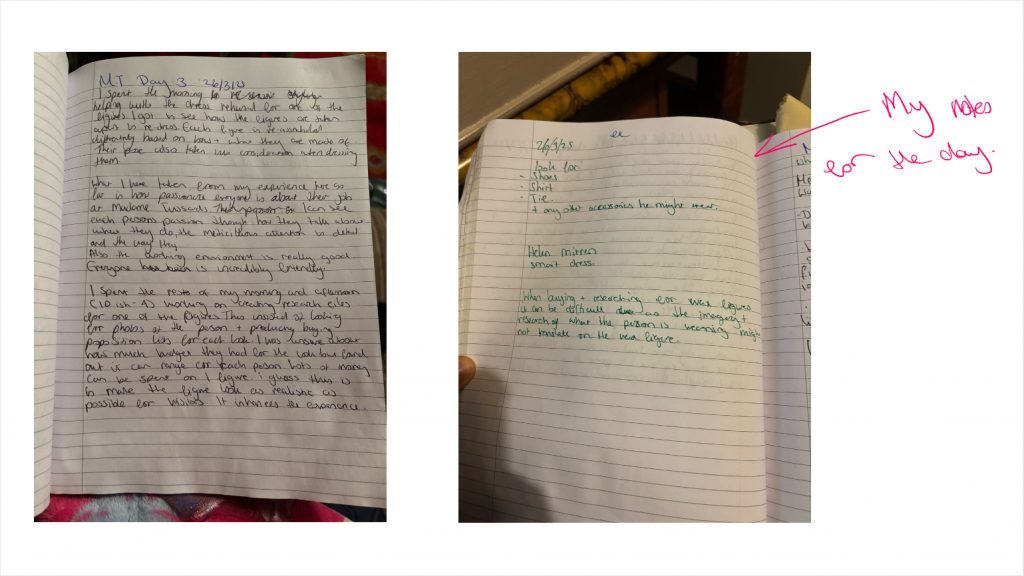 MT Day 3 26/3/25
I spent the morning
helping with the dress rehersal for one of the
figures I got to see how the figures are taken
apart to re-dress. Each figure is re-assembled
differently based on how + what they are made of
Their pose also taken into consideration when dressing
them.
What I have taken from my experience here so
far is how passionate everyone is about their job
at Madame Tussards. I can see
each persons passion though how they talk about
what they do, the meticilious attention to detail
and the way they
Also the working environment is really good
Everyone is incredibly friendly.
I spent the rests of my morning and afternoon
(10ish-4) working on creating research files
for one of the figures. This insisted of looking
for photos of the person + producing buying
proposition lists for each look. I was unsure about
how much budget they had for the look but found
out it can range for each person lots of money
can be spent on 1 figure. i guess this is
to make the figure look as realistic as
possible for visitors. It inhances the experience.
26/3/25
look for
- Shoes
- Shirt
- Tie
+ any other accessories he might wear.
Helen mirren
smart dress.
When buying + researching for wax figures
it can be difficult as the imagery +
research of what the person is wearing might
not translate on the wax figure.
My notes
for the day.